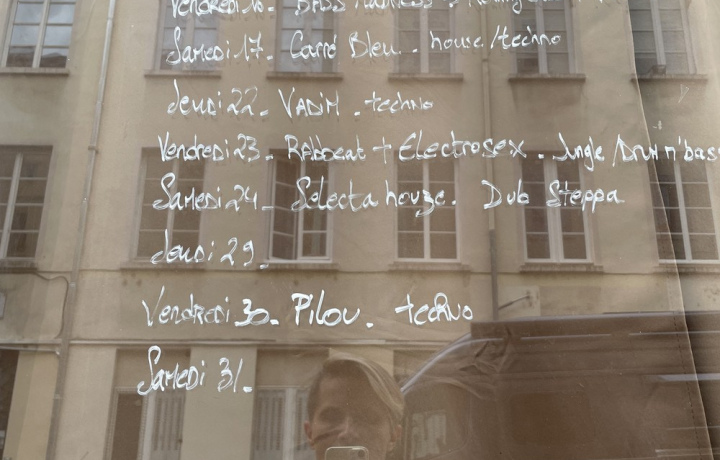 Vendredi 16. Bass
Samedi 17. Carré Bleu. house/techno
Jeudi 22. VADIM. techno
Vendredi 23. RAbbeat + Electrosex. Jungle/Drum n'bass
Samedi 24_ Selecta houze. Dub Steppa
Jeudi 29.
Vendredi 30. Pilou. techno
Samedi 31.